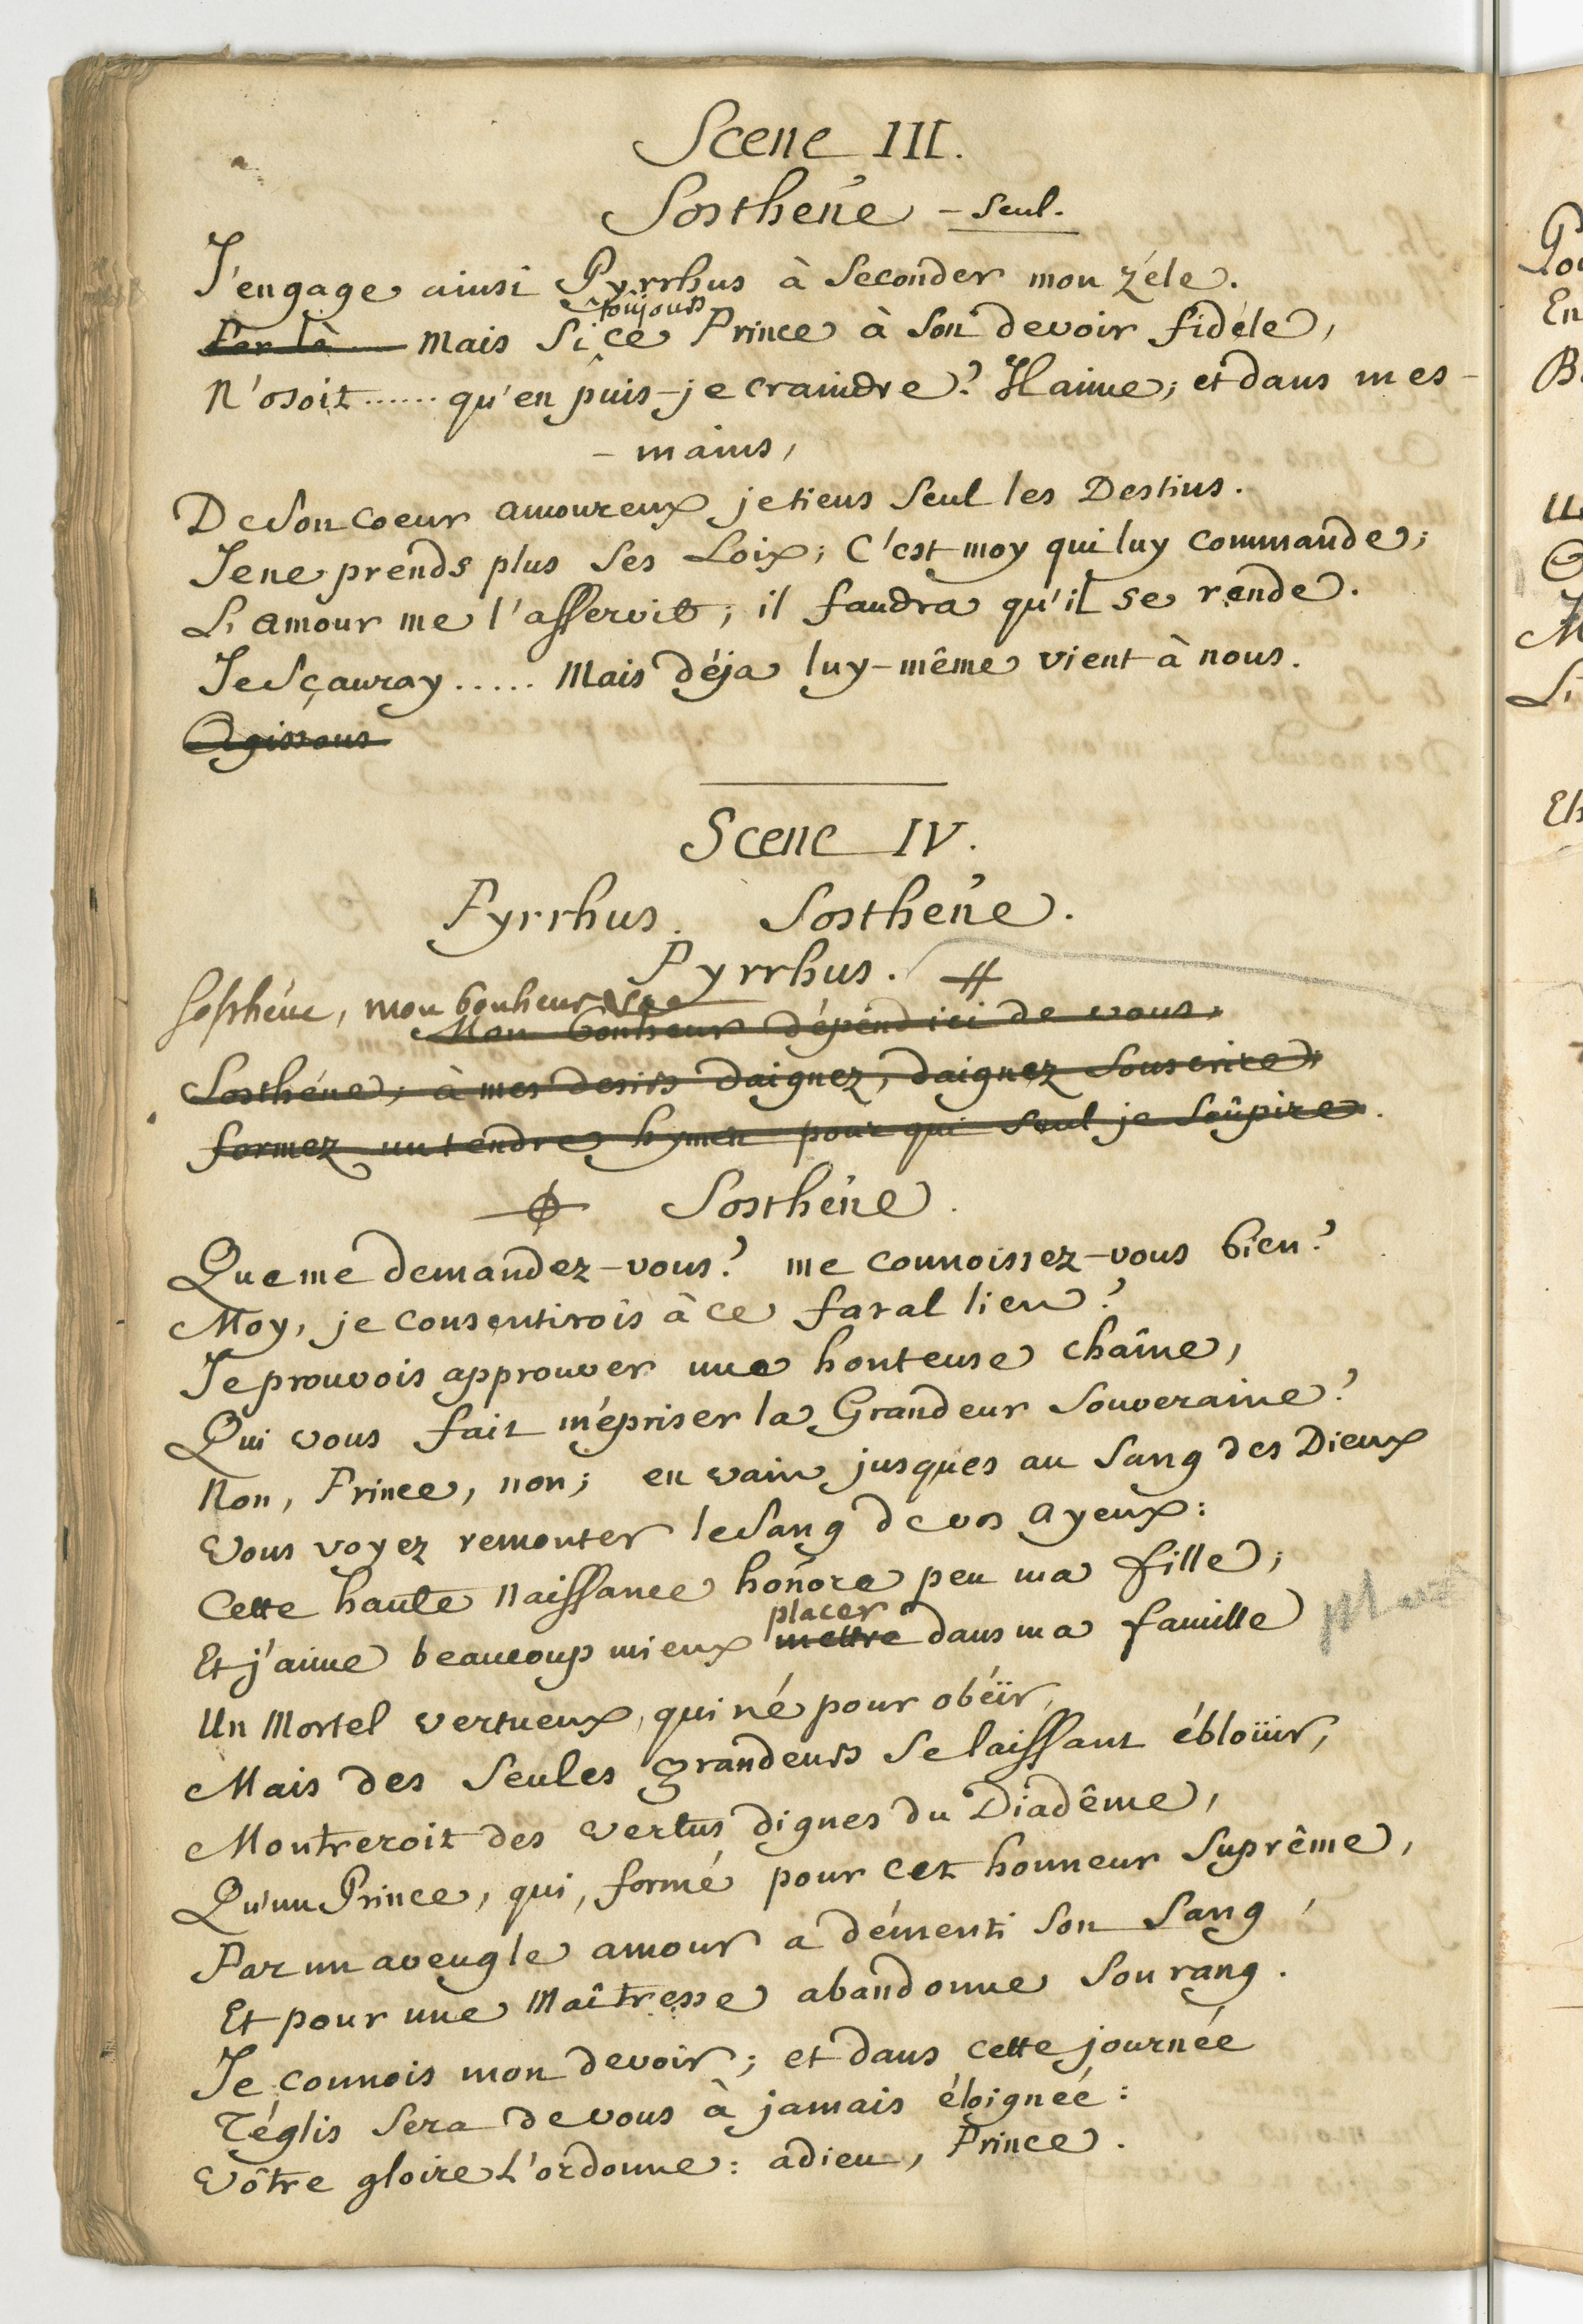 Scene III.
Sosthéne – Seul.
J'engage ainsi Pyrrhus à Seconder mon zéle.
toûjours
Par là mais Si ce Prince à Son devoir fidéle,
N'osoit...... qu'en puis-je craindre? Il aime; et dans mes-
- mains,
De Son coeur amoureux je tiens Seul les Destins.
Je ne prends plus Ses Loix; C'est moy qui luy commande;
L'amour me l'asservit; il faudra qu'il se rende.
Je Sçauray..... Mais déja luy-même vient à nous.
Agissons
Scene IV.
Pyrrhus. Sosthéne.
Pyrrhus. #
Sosthéne, mon bonheur
Mon bonheur dépend ici de vous,
Sosthéne; à mes desirs daignez, daignez Souscrire;
formez un tendre hymen pour qui Seul je Soûpire.
Sosthéne.
Que me demandez-vous? me connoissez-vous bien?
Moy, je consentirois à ce fatal lien?
Je prouvois approuver une honteuse chaîne,
Qui vous fait mépriser la Grandeur Souveraine?
Non, Prince, non; en vain jusques au Sang des Dieux
Vous voyez remonter le Sang de vos Ayeux:
Cette haute naissance honore peu ma fille;
placer
Et j'aime beaucoup mieux mettre dans ma famille
Un Mortel vertueux, qui né pour obéïr,
Mais des Seules grandeurs Se laissant ébloüir,
Montreroit des vertus dignes du Diadême,
Qu'un Prince, qui, formé pour cet honneur Suprême,
Par un aveugle amour a démenti Son Sang,
Et pour une Maîtresse abandonne Son rang.
Je connois mon devoir; et dans cette journée
Téglis Sera de vous à jamais éloignée:
Vôtre gloire L'ordonne: adieu, Prince.